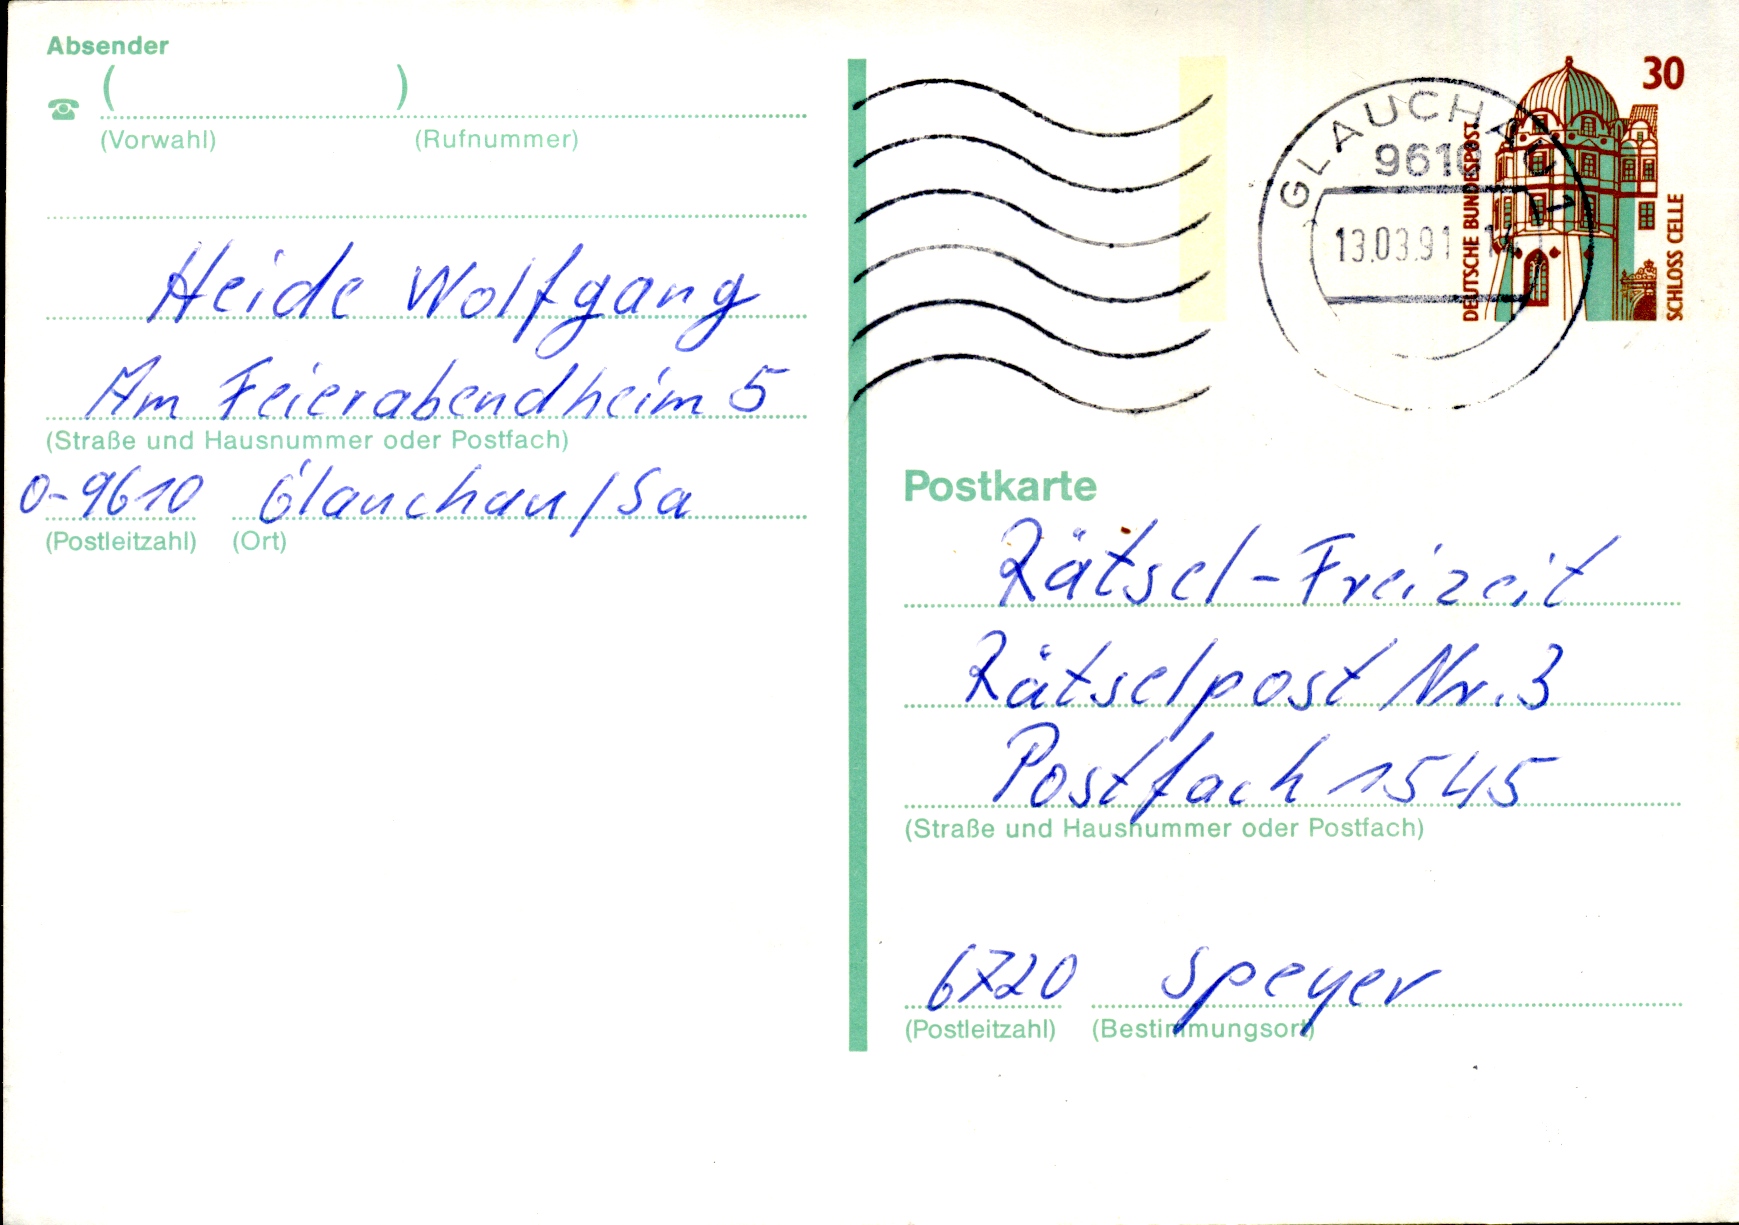 Absender
( )
(Vorwahl) (Rufnummer)
Heide Wolfgang
Am Feierabendheim 5
(Straße und Hausnummer oder Postfach)
O-9610 Glauchau/Sa
(Postleitzahl) (Ort)
30
DEUTSCHE BUNDESPOST
SCHLOSS CELLE
GLAUCHAU 1
9610
13.03.91 14
Postkarte
Rätsel-Freizeit
Rätselpost Nr. 3
Postfach 1545
(Straße und Hausnummer oder Postfach)
6720 Speyer
(Postleitzahl) (Bestimmungsort)